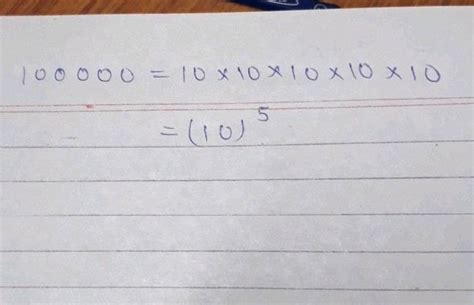 100000 = 10 × 10 × 10 × 10 × 10
= (10)⁵